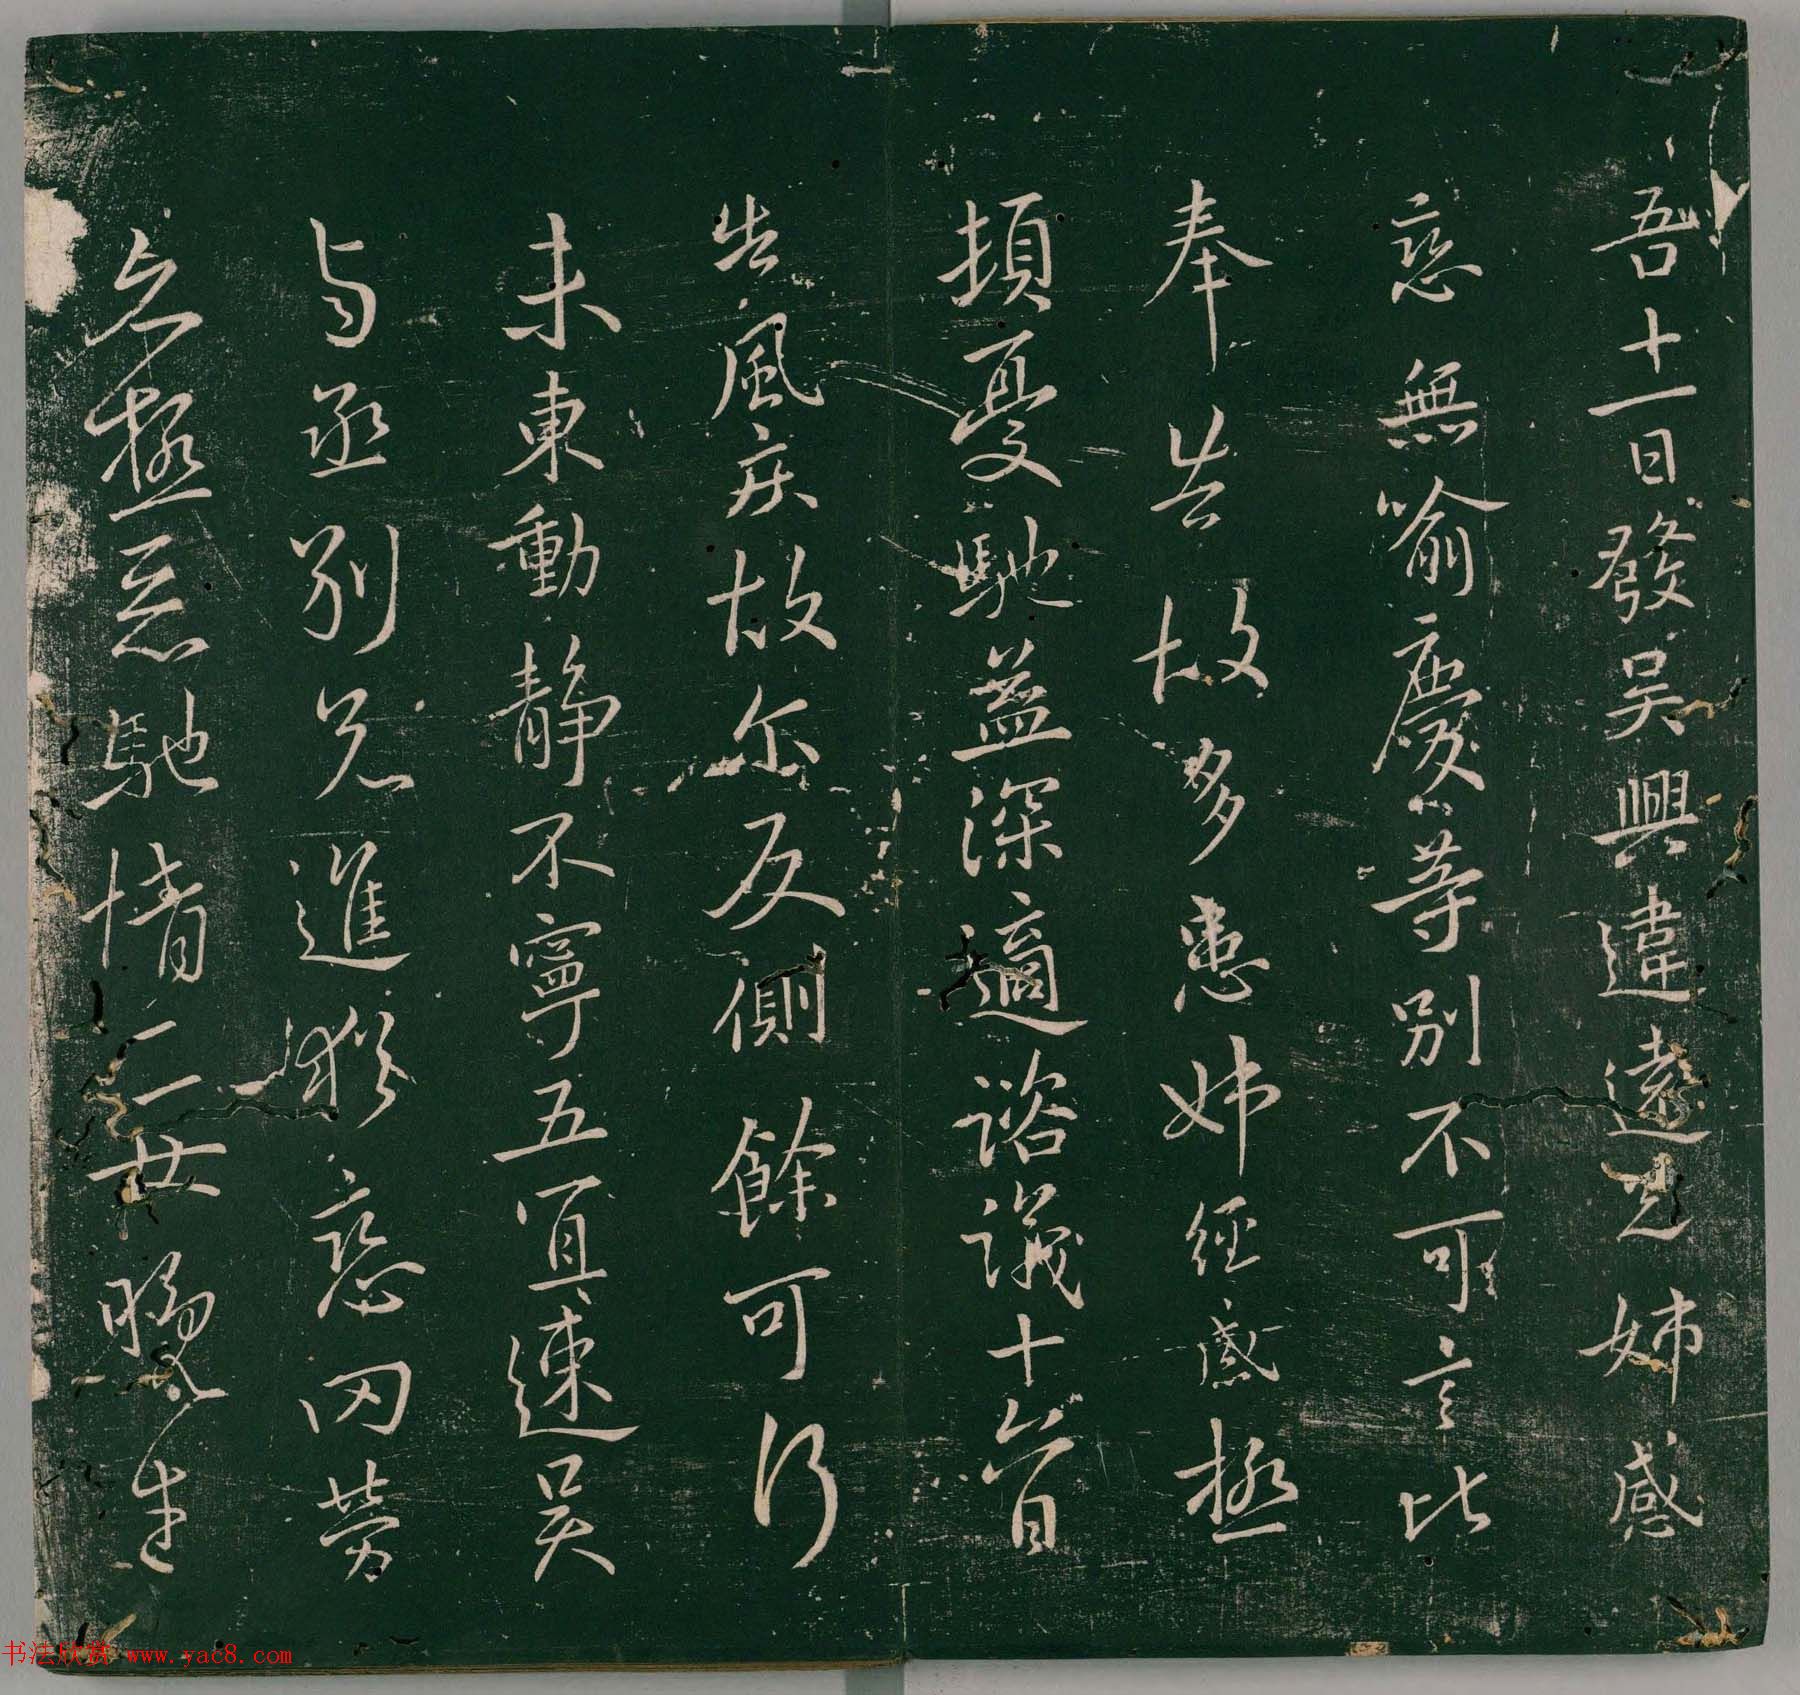 吾十一日發吳興違遠兄姊感
戀無喻慶等別不可言比
奉告故多患姊經感極
頓憂馳益深適諮議十六日
告風疾故尒反側餘可行
未東動靜不寧五速吳
与丞別兄進戀罔勞
極馳情二女晚生
书法欣赏 www.yac8.com